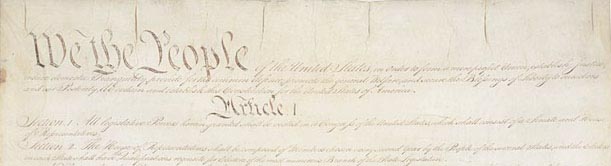 We the People of the United States, in Order to form a more perfect Union, establish Justice,
insure domestic Tranquility, provide for the common defence, promote the general Welfare, and secure the Blessings of Liberty to ourselves
and our Posterity, do ordain and establish this Constitution for the United States of America.
Article. I.
Section. 1. All legislative Powers herein granted shall be vested in a Congress of the United States, which shall consist of a Senate and House
of Representatives.
Section. 2. The House of Representatives shall be composed of Members chosen every second Year by the People of the several States, and the Electors
in each State shall have the Qualifications requisite for Electors of the most numerous Branch of the State Legislature.